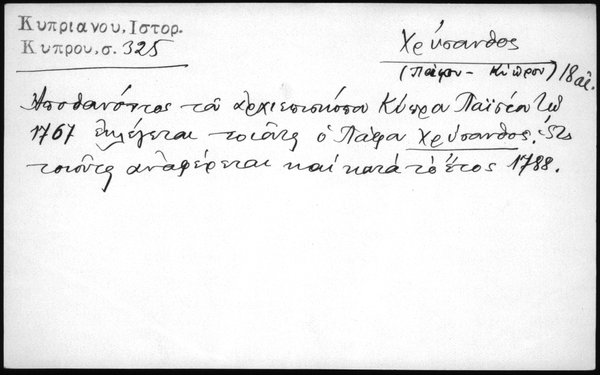 Κυπριανου, Ιστορ.
Κυπρου, σ. 325
Χρύσανθος
(Πάφου - Κύπρου) 18 αἰ.
Ἀποθανόντος τοῦ ἀρχιεπισκόπου Κύπρου Παϊσίου τῷ
1767 ἐκλέγεται τοιοῦτος ὁ Πάφου Χρύσανθος. Ὡς
τοιοῦτος ἀναφέρεται καὶ κατὰ τὸ ἔτος 1788.